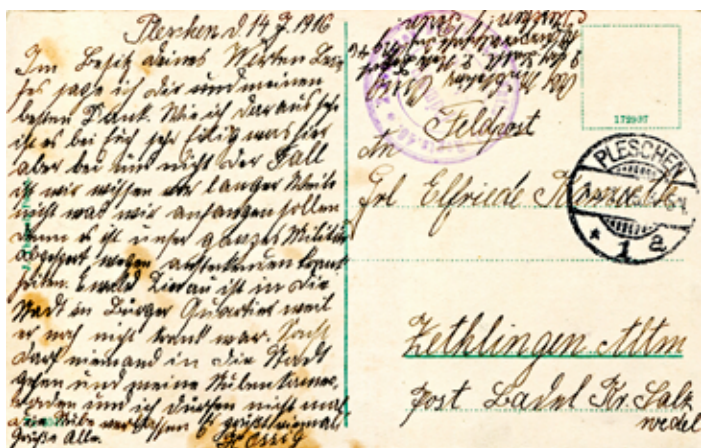 Pleschen d 14 7. 1916
Im Besitz deines Werten Brie-
fes sage ich dir und meinen
besten Dank. Wie ich daraus seh
ist es bei Euch sehr eilig was hier
aber bei uns nicht der Fall
ist wir wissen vor langer Weile
nicht was wir anfangen sollen
denn es ist unser ganzes Militär
abgesperrt wegen ansteckenden Krank
heiten. Ewald Zierau ist in die
Stadt in Bürger Quartier weil
er noch nicht krank war. Sonst
darf niemand in die Stadt
gehen und meine Stubenkame-
raden und ich dürfen nicht mal
die Stube verlassen Es grüßt vielmal
Grüße Alle.
Feldpost
An
Frl Elfriede
Zethlingen Altm
Post Badel Kr. Salz
wedel
172937
PLESCHEN
* 1 a